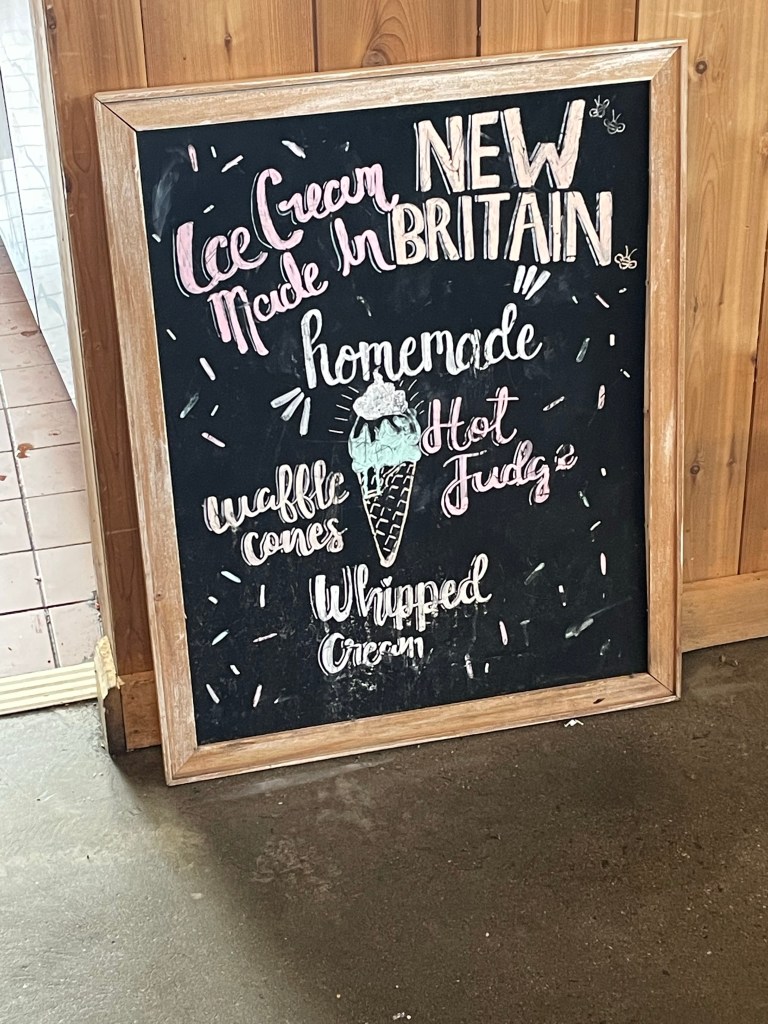 Ice Cream
Made In
NEW
BRITAIN
homemade
Hot
Fudge
Waffle
cones
Whipped
Cream